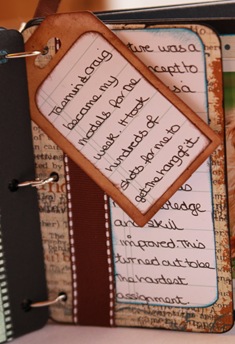 Tasmin & Craig
became my
models for the
week. It took
hundreds of
shots for me to
get the hang of it.
ture was a
ncept to
s a
ledge
and skill
improved. This
turned out to be
the hardest
assignment.